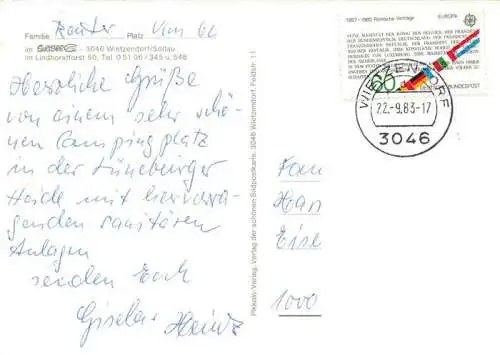 Familie Reuter Platz
im Südsee 3046 Wietzendorf/Soltau
im Lindhorstforst 50, Tel 0 51 96 / 345 u. 546
Herzliche Grüße
von einem sehr schö-
nen Campingplatz
in der Lüneburger
Heide mit hervorra-
genden sanitären
Anlagen
senden Euch
Gisela + Heinz
Pkkolo-Verlag, Verlag der schönen Bildpostkarte, 3046 Wietzendorf, Feldstr. 11
1957-1980 Römische Verträge EUROPA
60
DEUTSCHE BUNDESPOST
WIETZENDORF
22.-9.83-17
3046
Fam
Han
Eise
1000